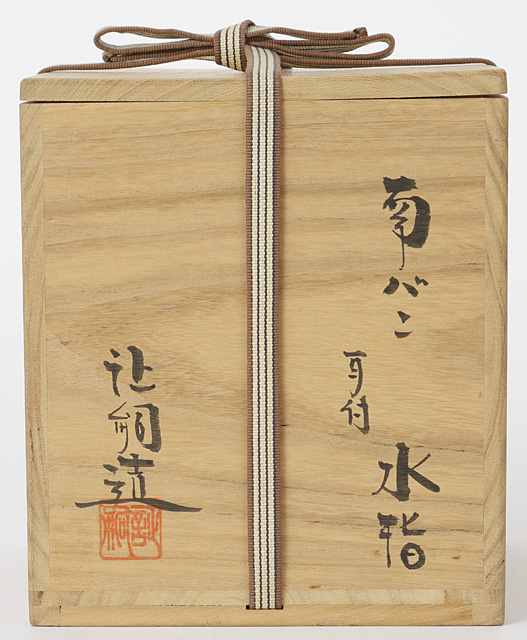 南バン
耳付
水指
嗣造